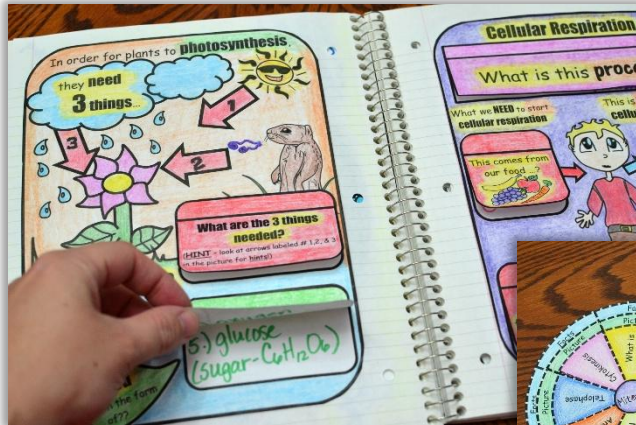 In order for plants to photosynthesis,
they need
3 things...
1
2
3
What are the 3 things
needed?
(HINT - look at arrows labeled # 1,2, & 3
in the picture for hints!)
5.) glucose
(sugar-C6H12O6)
in the form
of??
Cellular Respiration
What is this
What we NEED to start
cellular respiration
This is
This comes from
our food...?
Facts
Picture
Cytokinesis
What is
Picture
Telophase